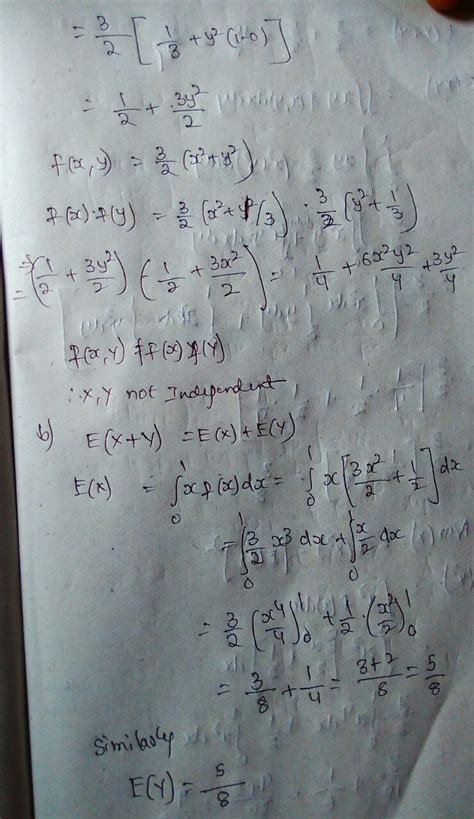 = 3/2 [ 1/3 + y²(1-0) ]
= 1/2 + 3y²/2
f(x,y) = 3/2 (x²+y²)
f(x)·f(y) = 3/2 (x²+1/3) · 3/2 (y²+1/3)
⇒ = (1/2 + 3y²/2) (1/2 + 3x²/2) = 1/4 + 6x²y²/4 + 3y²/4
f(x,y) ≠ f(x) f(y)
∴ X, Y not Independent
b) E(X+Y) = E(X) + E(Y)
E(X) = ∫₀¹ x f(x) dx = ∫₀¹ x [ 3x²/2 + 1/2 ] dx
= ∫₀¹ 3/2 x³ dx + ∫₀¹ x/2 dx
= 3/2 (x⁴/4)₀¹ + 1/2 · (x²/2)₀¹
= 3/8 + 1/4 = 3+2/8 = 5/8
Similarly
E(Y) = 5/8